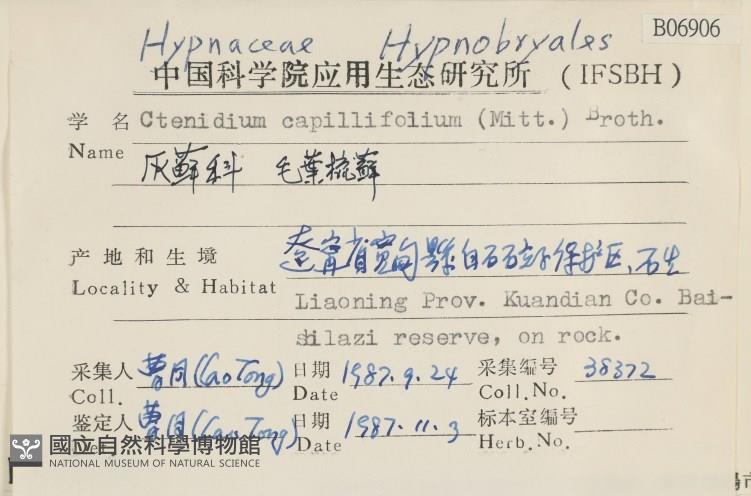 B06906
Hypnaceae Hypnobryales
中国科学院应用生态研究所 (IFSBH)
学 名 Ctenidium capillifolium (Mitt.) Broth.
Name
灰蘚科 毛葉梳蘚
产 地 和 生 境 辽宁省宽甸县白石砬子保护区、石生
Locality & Habitat Liaoning Prov. Kuandian Co. Bai-
shilazi reserve, on rock.
采集人 曹同 (Cao Tong) 日期 1987.9.24 采集编号 38372
Coll. Date Coll.No.
鉴定人 曹同 (Cao Tong) 日期 1987.11.3 标本室编号
Date Herb.No.
國立自然科學博物館
NATIONAL MUSEUM OF NATURAL SCIENCE